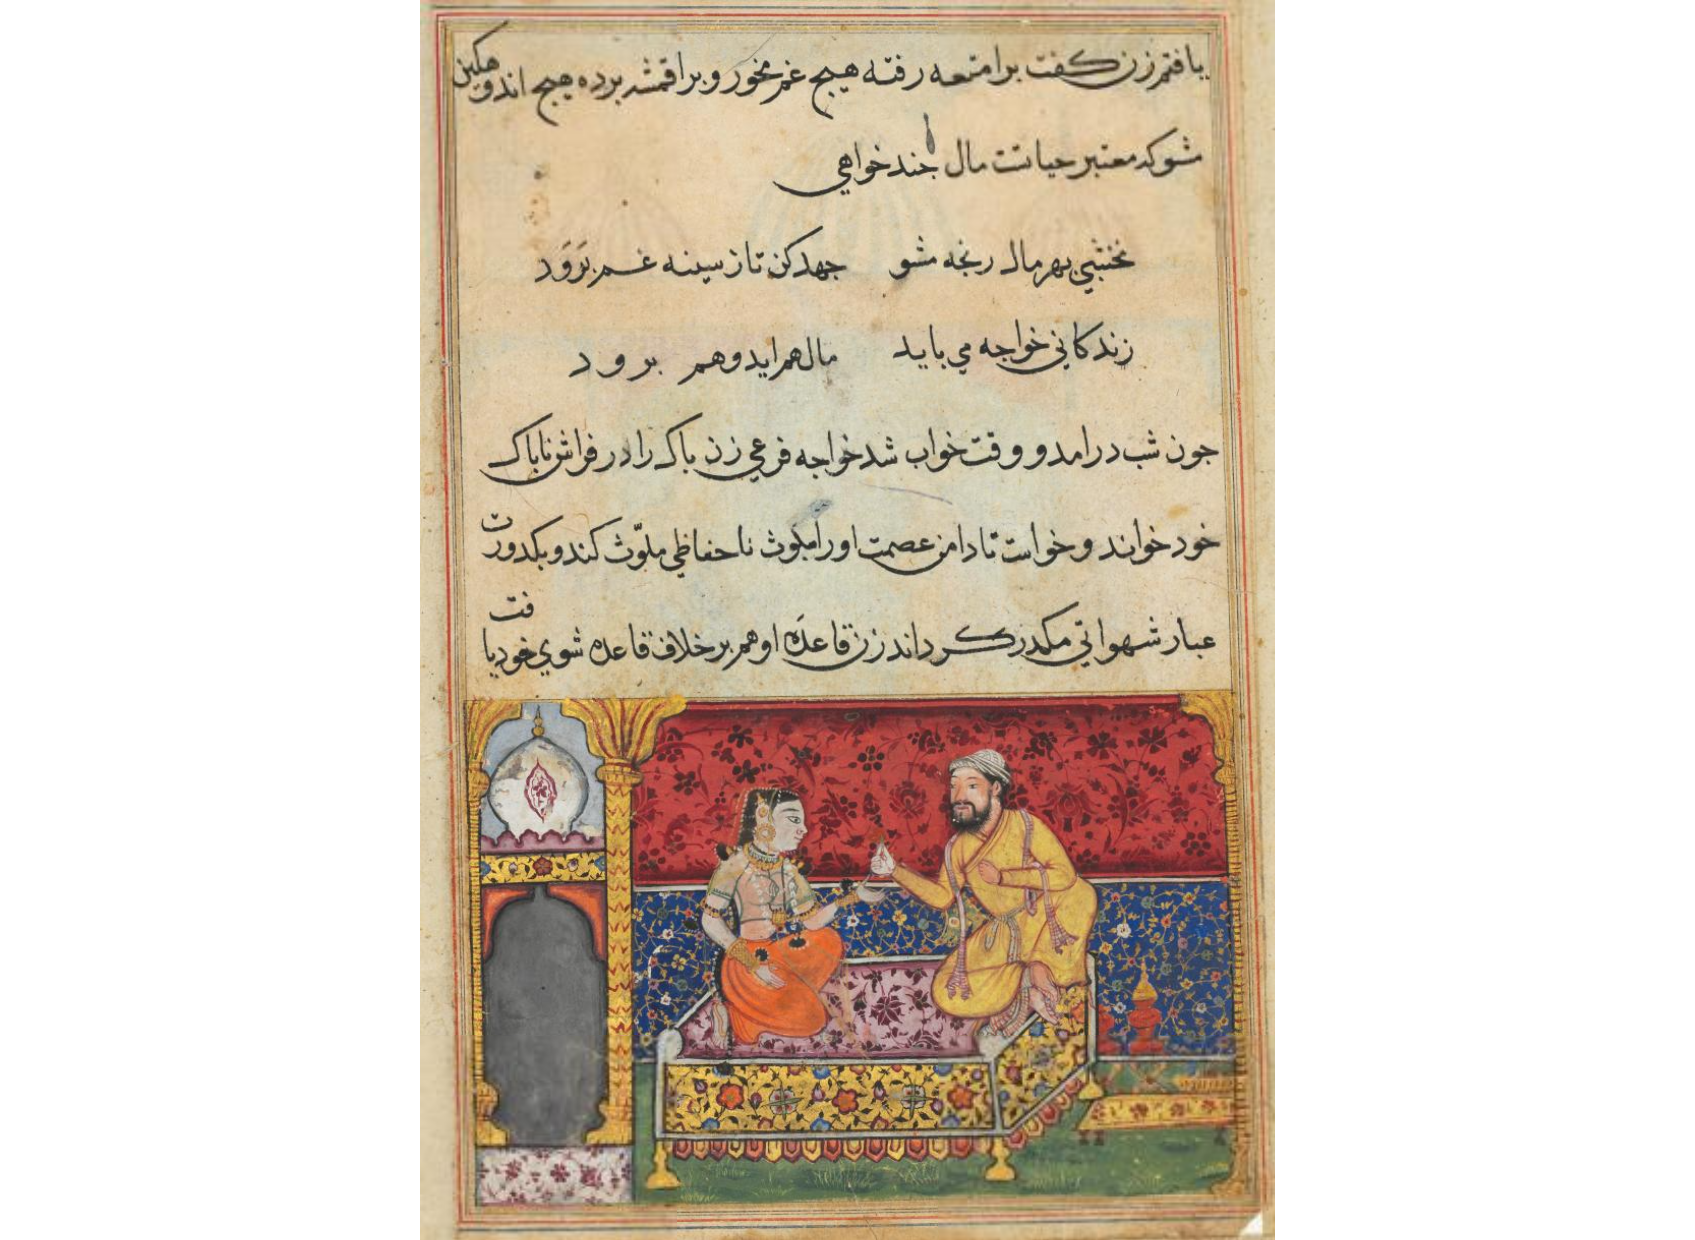 یافتم زن گفت بر امتعه رفته هیچ غم مخور و بر اقمشه برده هیچ اندوهکین
مشو که معتبر حیاتت مال جند خواهی
نخشبي بهر مال رنجه مشو جهد کن تا ز سینه غم برَوَد
زندکاني خواجه می باید مال هم اید و هم برود
جون شب درامد و وقت خواب شد خواجه فرعي زن باک را در فراش ناباک
خود خواند و خواست تا دامن عصمت او را بلوث ناحفاظي ملوّث کند و بکدورت
عبار شهواتي مکدر کرداند زن قاعدَه او هم بر خلاف قاعده شوي خود یافت